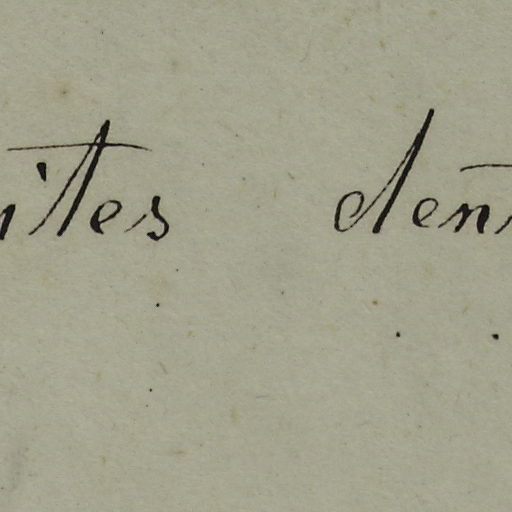 ites den